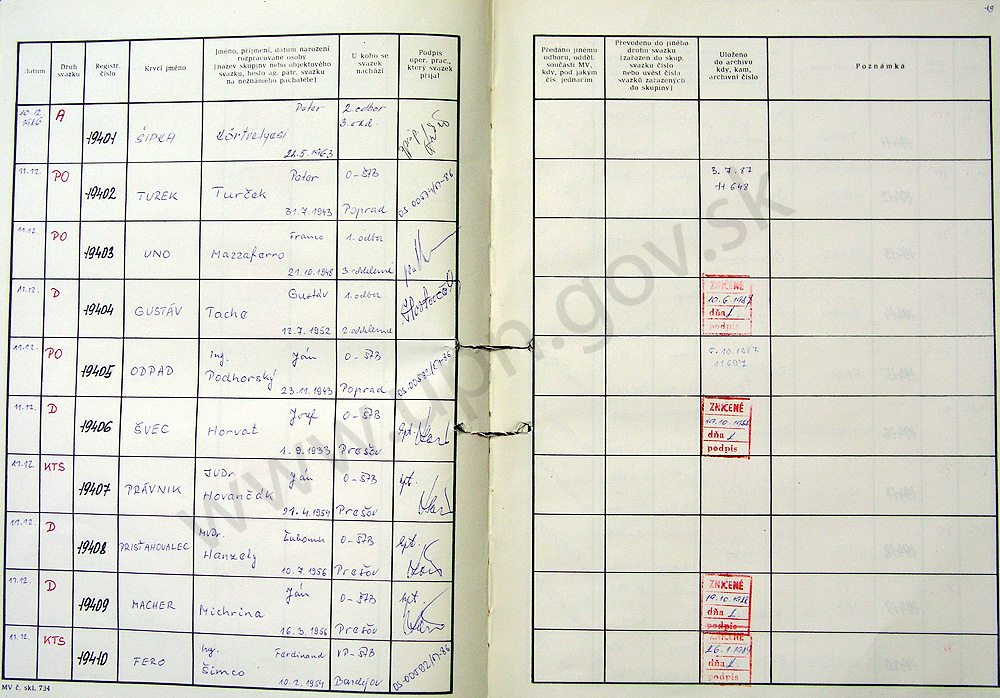 19
Datum
Druh svazku
Registr. číslo
Krycí jméno
Jméno, příjmení, datum narození
rozpracované osoby
(název skupiny nebo objektového
svazku, heslo ag. pátr. svazku
na neznámého pachatele)
U koho se
svazek
nachází
Podpis
oper. prac.,
který svazek
přijal
Předáno jinému
odboru, odděl.
součásti MV,
kdy, pod jakým
čís. jednacím
Převedeno do jiného
druhu svazku
(zařazen do skup.
svazku číslo
nebo uvést čísla
svazků zařazených
do skupiny)
Uloženo
do archivu
kdy, kam,
archivní číslo
Poznámka
10.12. 1986 A Peter 2. odbor
3. odd.
19401 ŠÍPKA Körtvelyesi
22.5.1963
11.12. PO Peter O-ŠTB 3.7.87
19402 TUREK Turček 11648
31.7.1943 Poprad
11.12. PO Franco 1. odbor
19403 UNO Mazzaferro
21.10.1948 3. oddelenie
11.12. D Gustáv 1. odbor ZNIČENÉ
19404 GUSTÁV Tache 10.6.1987
dňa
12.7.1952 2. oddelenie podpis
11.12. PO Ing. Ján O-ŠTB 10.1987
19405 ODPAD Podhorský
23.11.1943 Poprad
11.12. D Jozef O-ŠTB ZNIČENÉ
19406 ŠVEC Horvat dňa
1.9.1933 Prešov podpis
11.12. KTS JUDr. Ján O-ŠTB
19407 PRÁVNIK Hovančák
21.4.1954 Prešov
11.12. D MVDr. Ľubomír O-ŠTB
19408 PRISŤAHOVALEC Hanzely
10.7.1956 Prešov
11.12. D Ján O-ŠTB ZNIČENÉ
19409 MACHER Michrina 19.10.1988
dňa
16.3.1956 Prešov podpis
11.12. KTS Ing. Ferdinand ZNIČENÉ
19410 FERO Šimco dňa
10.2.1954 Bardejov podpis
MV č. skl. 734
www.upn.gov.sk